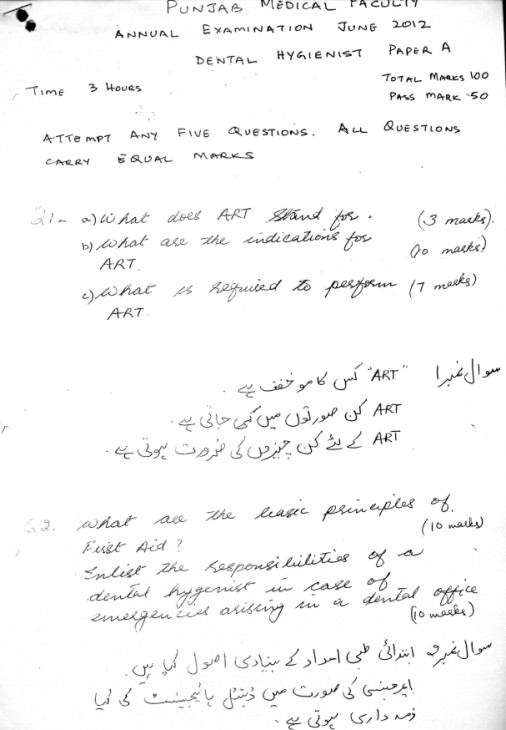 PUNJAB MEDICAL FACULTY
ANNUAL EXAMINATION JUNE 2012
DENTAL HYGIENIST PAPER A
TOTAL MARKS 100
TIME 3 HOURS
PASS MARK 50
ATTEMPT ANY FIVE QUESTIONS. ALL QUESTIONS
CARRY EQUAL MARKS
Q1- a) What does ART stand for. (3 marks).
b) What are the indications for
ART. (10 marks)
c) What is required to perform (7 marks)
ART.
سوال نمبر 1 "ART" کس کا مخفف ہے۔
ART کن صورتوں میں کی جاتی ہے۔
ART کے لئے کن چیزوں کی ضرورت ہوتی ہے۔
Q.2. What are the basic principles of
First Aid? (10 marks)
Enlist the responsibilities of a
dental hygenist in case of
emergencies arising in a dental office
(10 marks)
سوال نمبر 2 ابتدائی طبی امداد کے بنیادی اصول کیا ہیں۔
ایمرجنسی کی صورت میں ڈینٹل ہائیجینسٹ کی کیا
ذمہ داری ہوتی ہے۔